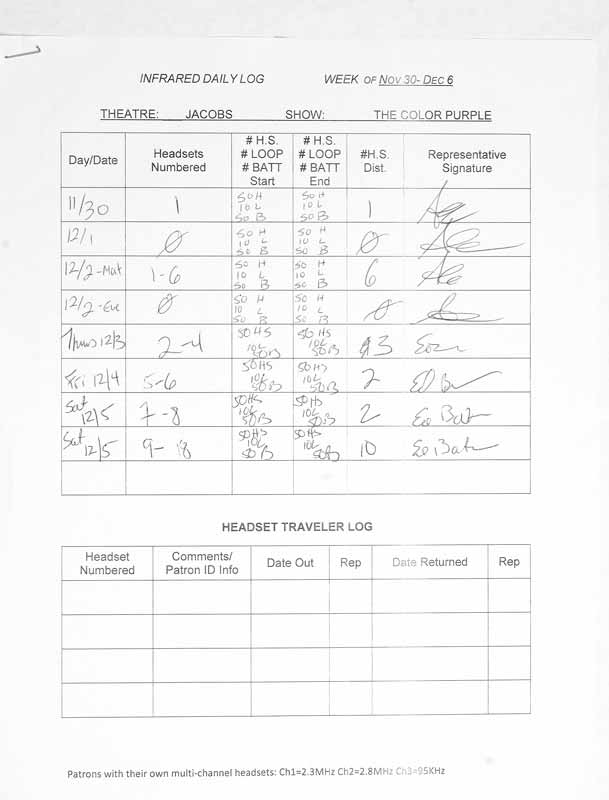 INFRARED DAILY LOG WEEK OF NOV 30- DEC 6
THEATRE: JACOBS SHOW: THE COLOR PURPLE
Day/Date
Headsets
Numbered
# H.S.
# LOOP
# BATT
Start
# H.S.
# LOOP
# BATT
End
#H.S.
Dist.
Representative
Signature
11/30 1 50 H 50 H 1
10 L 10 L
50 B 50 B
12/1 Ø 50 H 50 H Ø
10 L 10 L
50 B 50 B
12/2-Mat 1-6 50 H 50 H 6
10 L 10 L
50 B 50 B
12/2-Eve Ø 50 H 50 H Ø
10 L 10 L
50 B 50 B
Thurs 12/3 2-4 50 HS 50 HS 3
10L 10L
50B 50B
Fri 12/4 5-6 50HS 50HS 2
10L 10L
50B 50B
Sat 12/5 7-8 50HS 50HS 2
10L 10L
50B 50B
Sat 12/5 9-18 50HS 50HS 10
10L 10L
50B 50B
HEADSET TRAVELER LOG
Headset
Numbered
Comments/
Patron ID Info
Date Out
Rep
Date Returned
Rep
Patrons with their own multi-channel headsets: Ch1=2.3MHz Ch2=2.8MHz Ch3=95KHz